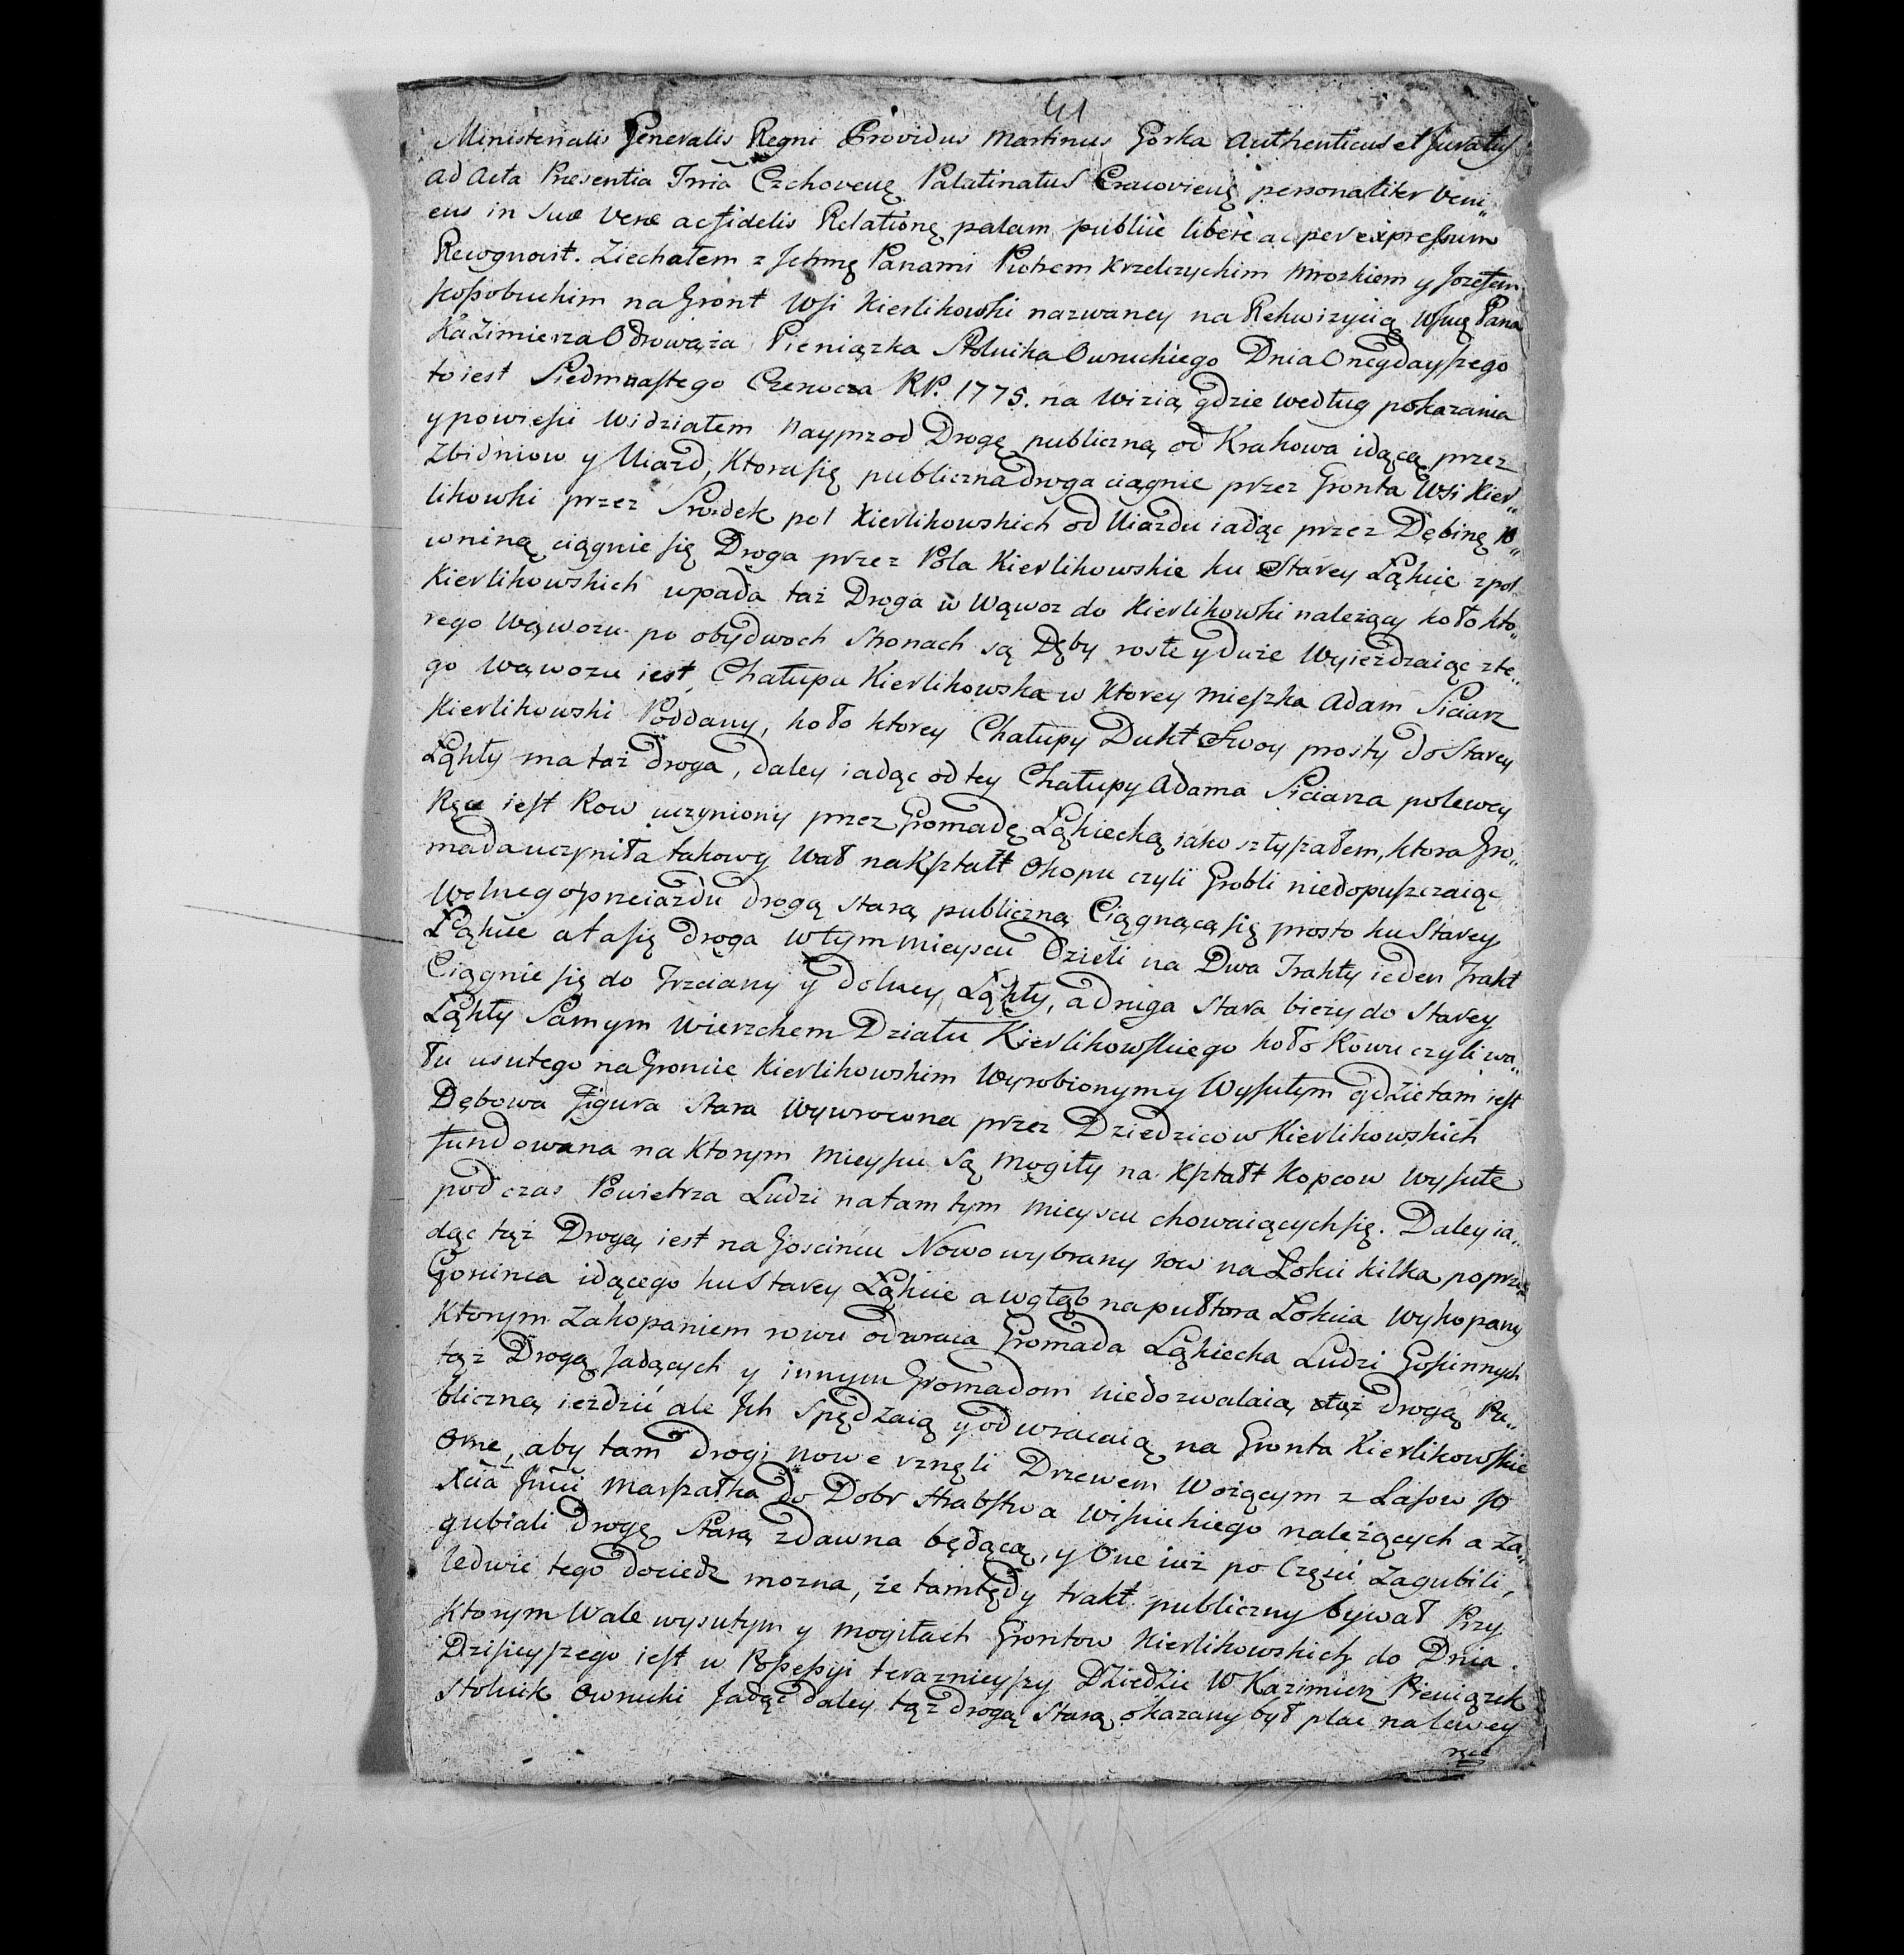 41
Ministerialis Generalis Regni Providus Martinus Gorka Authenticus et Juratus
ad Acta Presentia Trria Czchoveng Palatinatus Cracovieng personaliter veni„
ens in suæ veræ ac fidelis Relationę palam publicè liberè ac per expressum
Recognovit. Ziechałem z Jchmę Panami Piotrem Krzelczyckim Mroskiem y Jozefem
Kossobuckim na Gront Wsi Kierlikowki nazwaney na Rekwizycią Wgę Pana
Kazimierza Odrowąża Pieniązka Stolnika Owruckiego Dnia Onegdayszego
to iest Siedmnastego Czerwca R.P. 1775. na Wizią gdzie według pokazania
y powiesci widziałem nayprzod Drogę publiczną od Krakowa idącą przez
Zbidniow y Uiazd, ktora się publiczna droga ciągnie przez Gronta Wsi Kier„
likowki przez Srodek pol Kierlikowskich od Uiazdu iadąc przez Dębinę ro„
wniną ciągnie się Droga przez Pola Kierlikowskie ku Starey Łąkcie z pol
Kierlikowskich wpada taż Droga w Wąwoz do Kierlikowki należący koło kto„
rego Wąwozu po obydwoch stronach są Dęby rosłe y duże wyieżdzaiąc z te„
go wąwozu iest Chałupa Kierlikowska w ktorey mieszka Adam Siciarz
Kierlikowski Poddany, koło ktorey Chałupy Dukt Swoy prosty do Starey
Łąkty ma taż droga, daley iadąc od tey Chałupy Adama Siciarza po lewey
Ręce iest Row uczyniony przez Gromadę Łąkiecką iako słyszałem, ktora Gro„
mada uczyniła takowy Wał na Kształt Okopu czyli Grobli niedopuszczaiąc
Wolnego przeiazdu drogą starą publiczną Ciągnącą się prosto ku Starey
Łąkcie a ta się droga w tym mieyscu Dzieli na Dwa Trakty ieden Trakt
Ciągnie się do Trzciany y dolney Łąkty, a druga stara bieży do Starey
Łąkty Samym Wierzchem Działu Kierlikowskiego koło Rowu czyli wa„
łu usutego na Groncie Kierlikowskim Wyrobionym y Wysutym gdzie tam iest
Dębowa Figura stara Wywrocona przez Dziedzicow Kierlikowskich
fundowana na ktorym mieyscu są mogiły na Kształt Kopcow Wysute
podczas Powietrza Ludzi na tamtym mieyscu chowaiących się. Daley ia„
dąc tąż Drogą iest na Goscincu Nowo wybrany row na Łokci kilka poprzek
Goscinca idącego ku Starey Łąkcie a w głąb na pułtora Łokcia Wykopany
Ktorym Zakopaniem rowu odwraca Gromada Łąkiecka Ludzi Goscinnych
tąż Drogą Jadących y innym Gromadom niedozwalaią tąż drogą Pu„
bliczną iezdzić ale Jch Spędzaią y odwracaią na Gronta Kierlikowskie
Orne, aby tam drogi nowe rznęli Drzewem Wożącym z Lasow JO
Xcia Jmci Marszałka do Dobr Hrabstwa Wisnickiego należących a Za„
gubiali drogę Starą zdawna będącą, y One iuż po Częsci Zagubili,
ledwie tego dociedz mozna, że tamtędy trakt publiczny bywał Przy
Ktorym Wale wysutym y mogiłach Grontow Kierlikowskich do Dnia
Dzisieyszego iest w Possessyi teraznieyszy Dziedzic W Kazimierz Pieniązek
Stolnik Owrucki Jadąc daley tąż drogą Starą okazany był plac na lewey
ręce